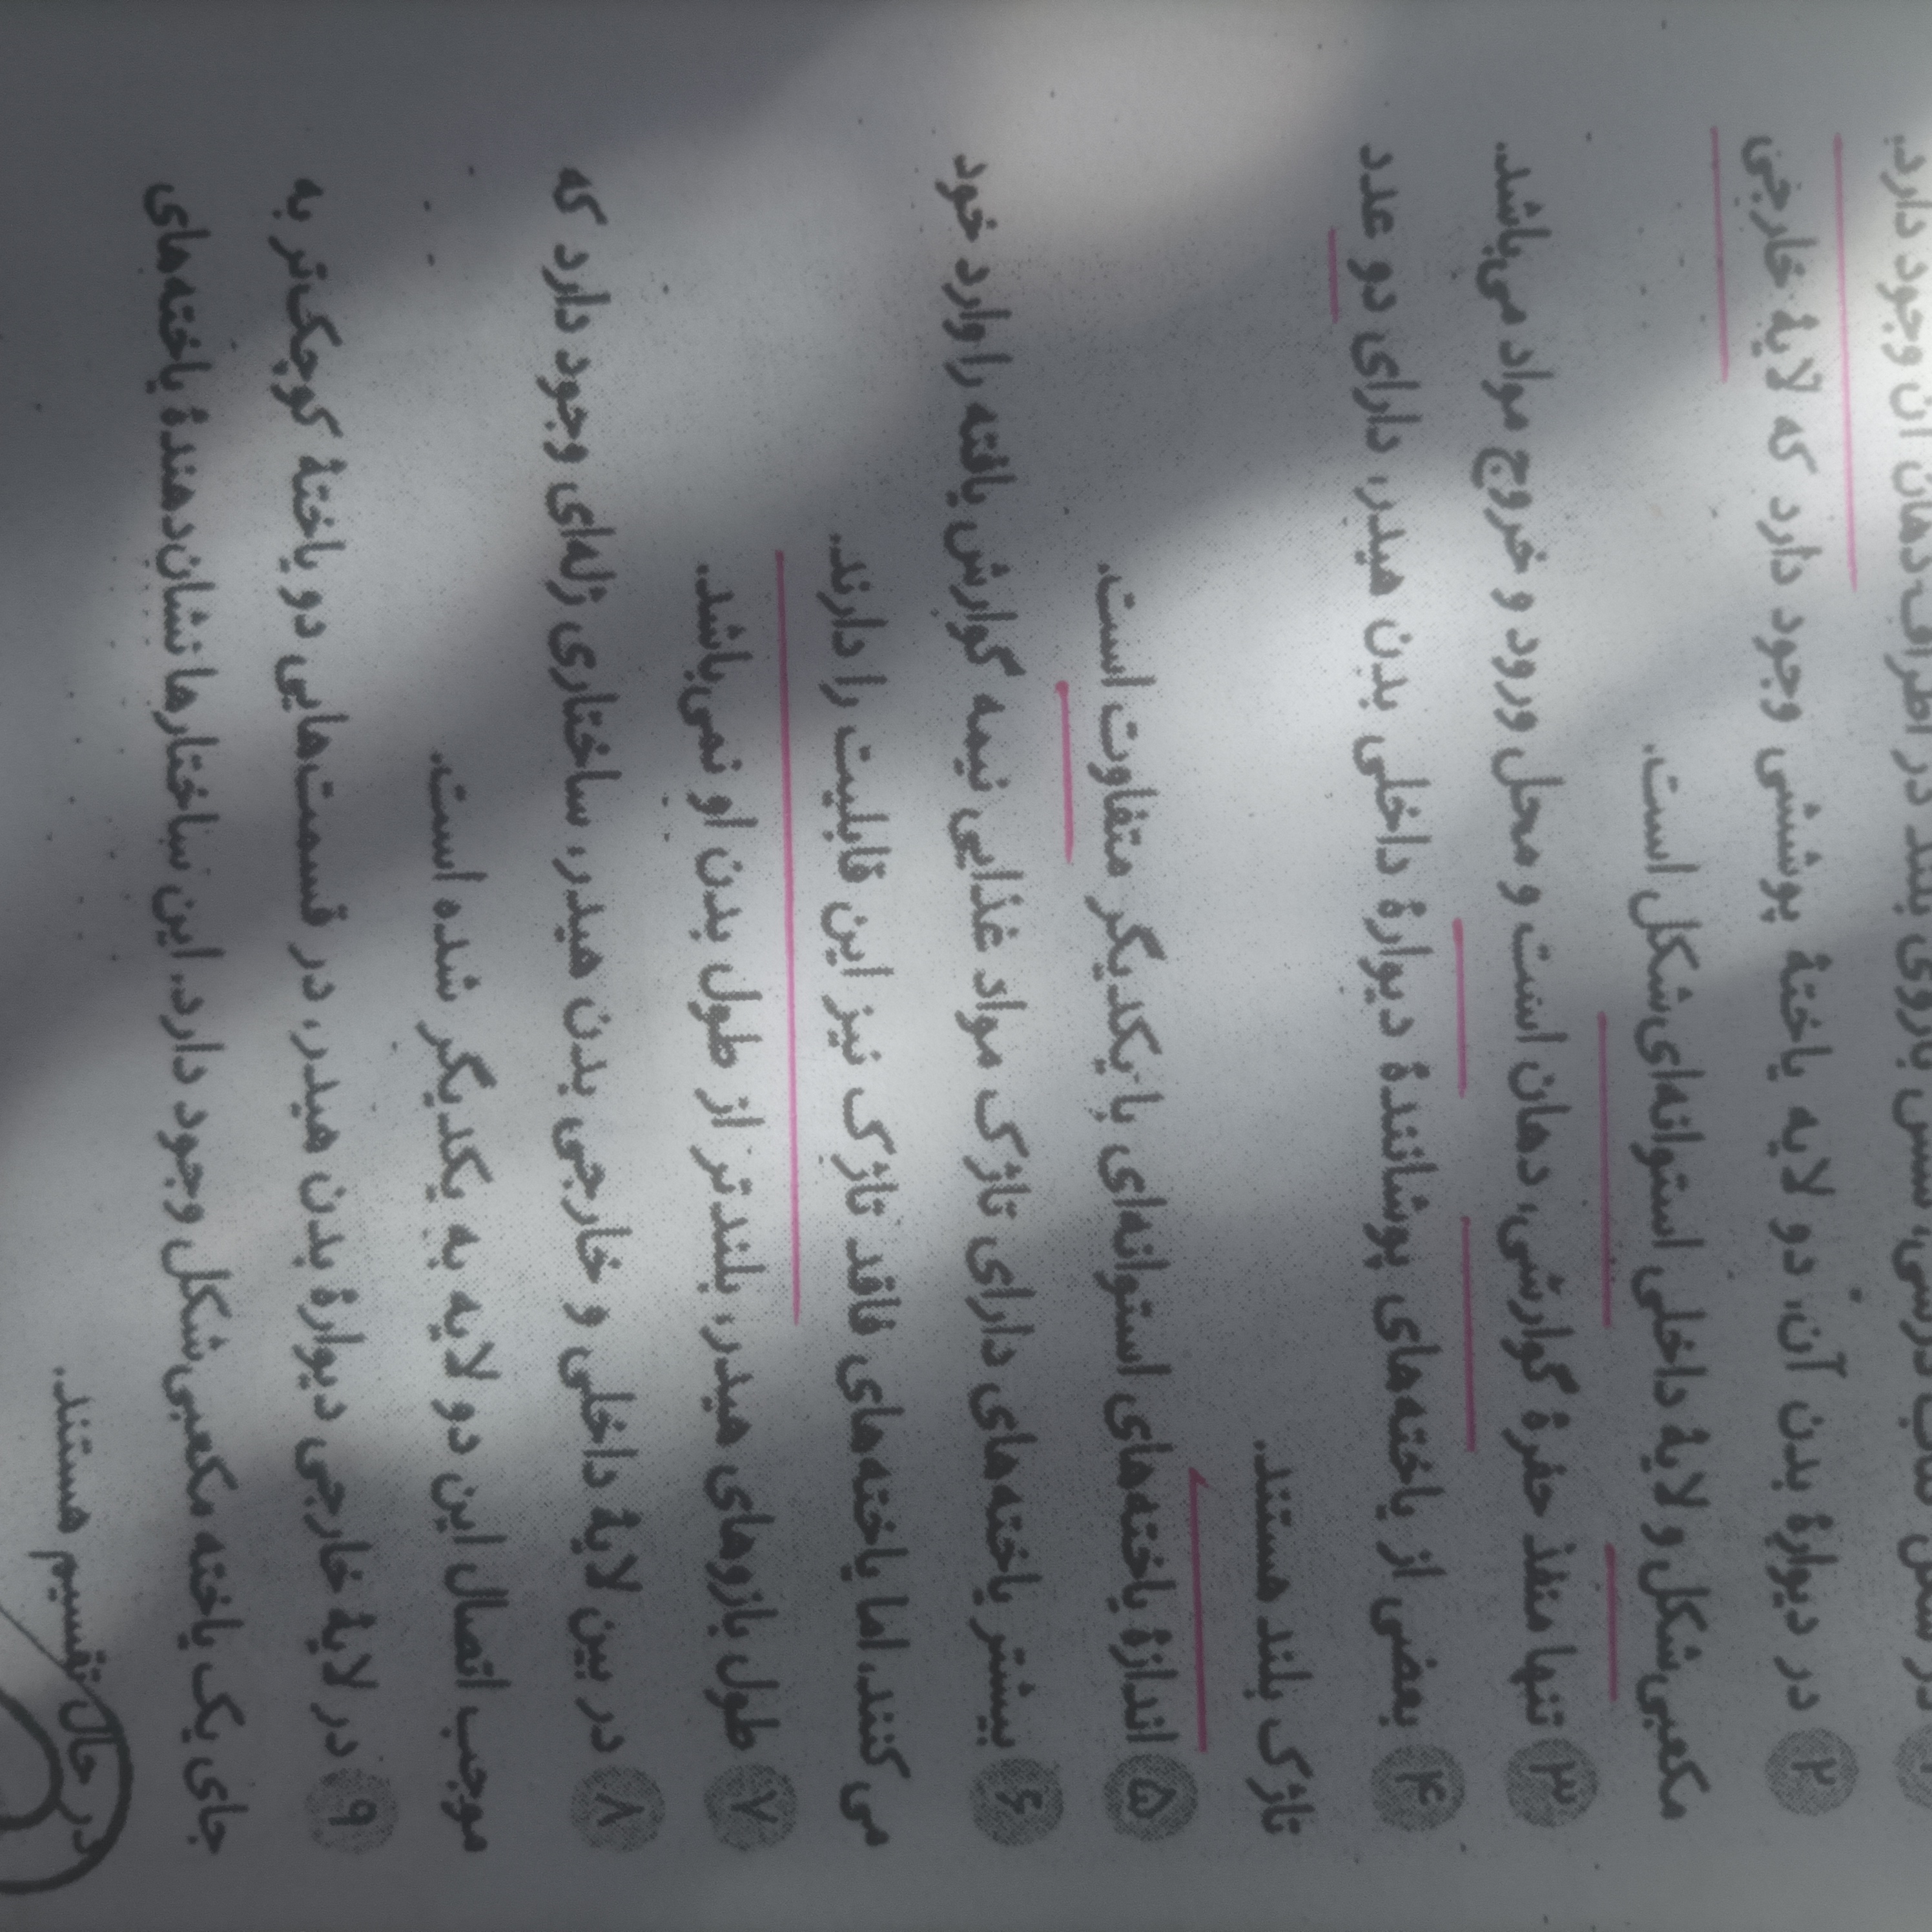 در شکل کتاب درسی، شش بازوی بلند در اطراف دهان آن وجود دارد.
۲ در دیوارهٔ بدن آن، دو لایه یاختهٔ پوششی وجود دارد که لایهٔ خارجی
مکعبی‌شکل و لایهٔ داخلی استوانه‌ای‌شکل است.
۳ تنها منفذ حفرهٔ گوارشی، دهان است و محل ورود و خروج مواد می‌باشد.
۴ بعضی از یاخته‌های پوشانندهٔ دیوارهٔ داخلی بدن هیدر، دارای دو عدد
تاژک بلند هستند.
۵ اندازهٔ یاخته‌های استوانه‌ای با یکدیگر متفاوت است.
۶ بیشتر یاخته‌های دارای تاژک مواد غذایی نیمه گوارش یافته را وارد خود
می‌کنند. اما یاخته‌های فاقد تاژک نیز این قابلیت را دارند.
۷ طول بازوهای هیدر، بلندتر از طول بدن او نمی‌باشد.
۸ در بین لایهٔ داخلی و خارجی بدن هیدر، ساختاری ژله‌ای وجود دارد که
موجب اتصال این دو لایه به یکدیگر شده است.
۹ در لایهٔ خارجی دیوارهٔ بدن هیدر، در قسمت‌هایی دو یاختهٔ کوچک‌تر به
جای یک یاخته مکعبی‌شکل وجود دارد. این ساختارها نشان‌دهندهٔ یاخته‌های
در حال تقسیم هستند.